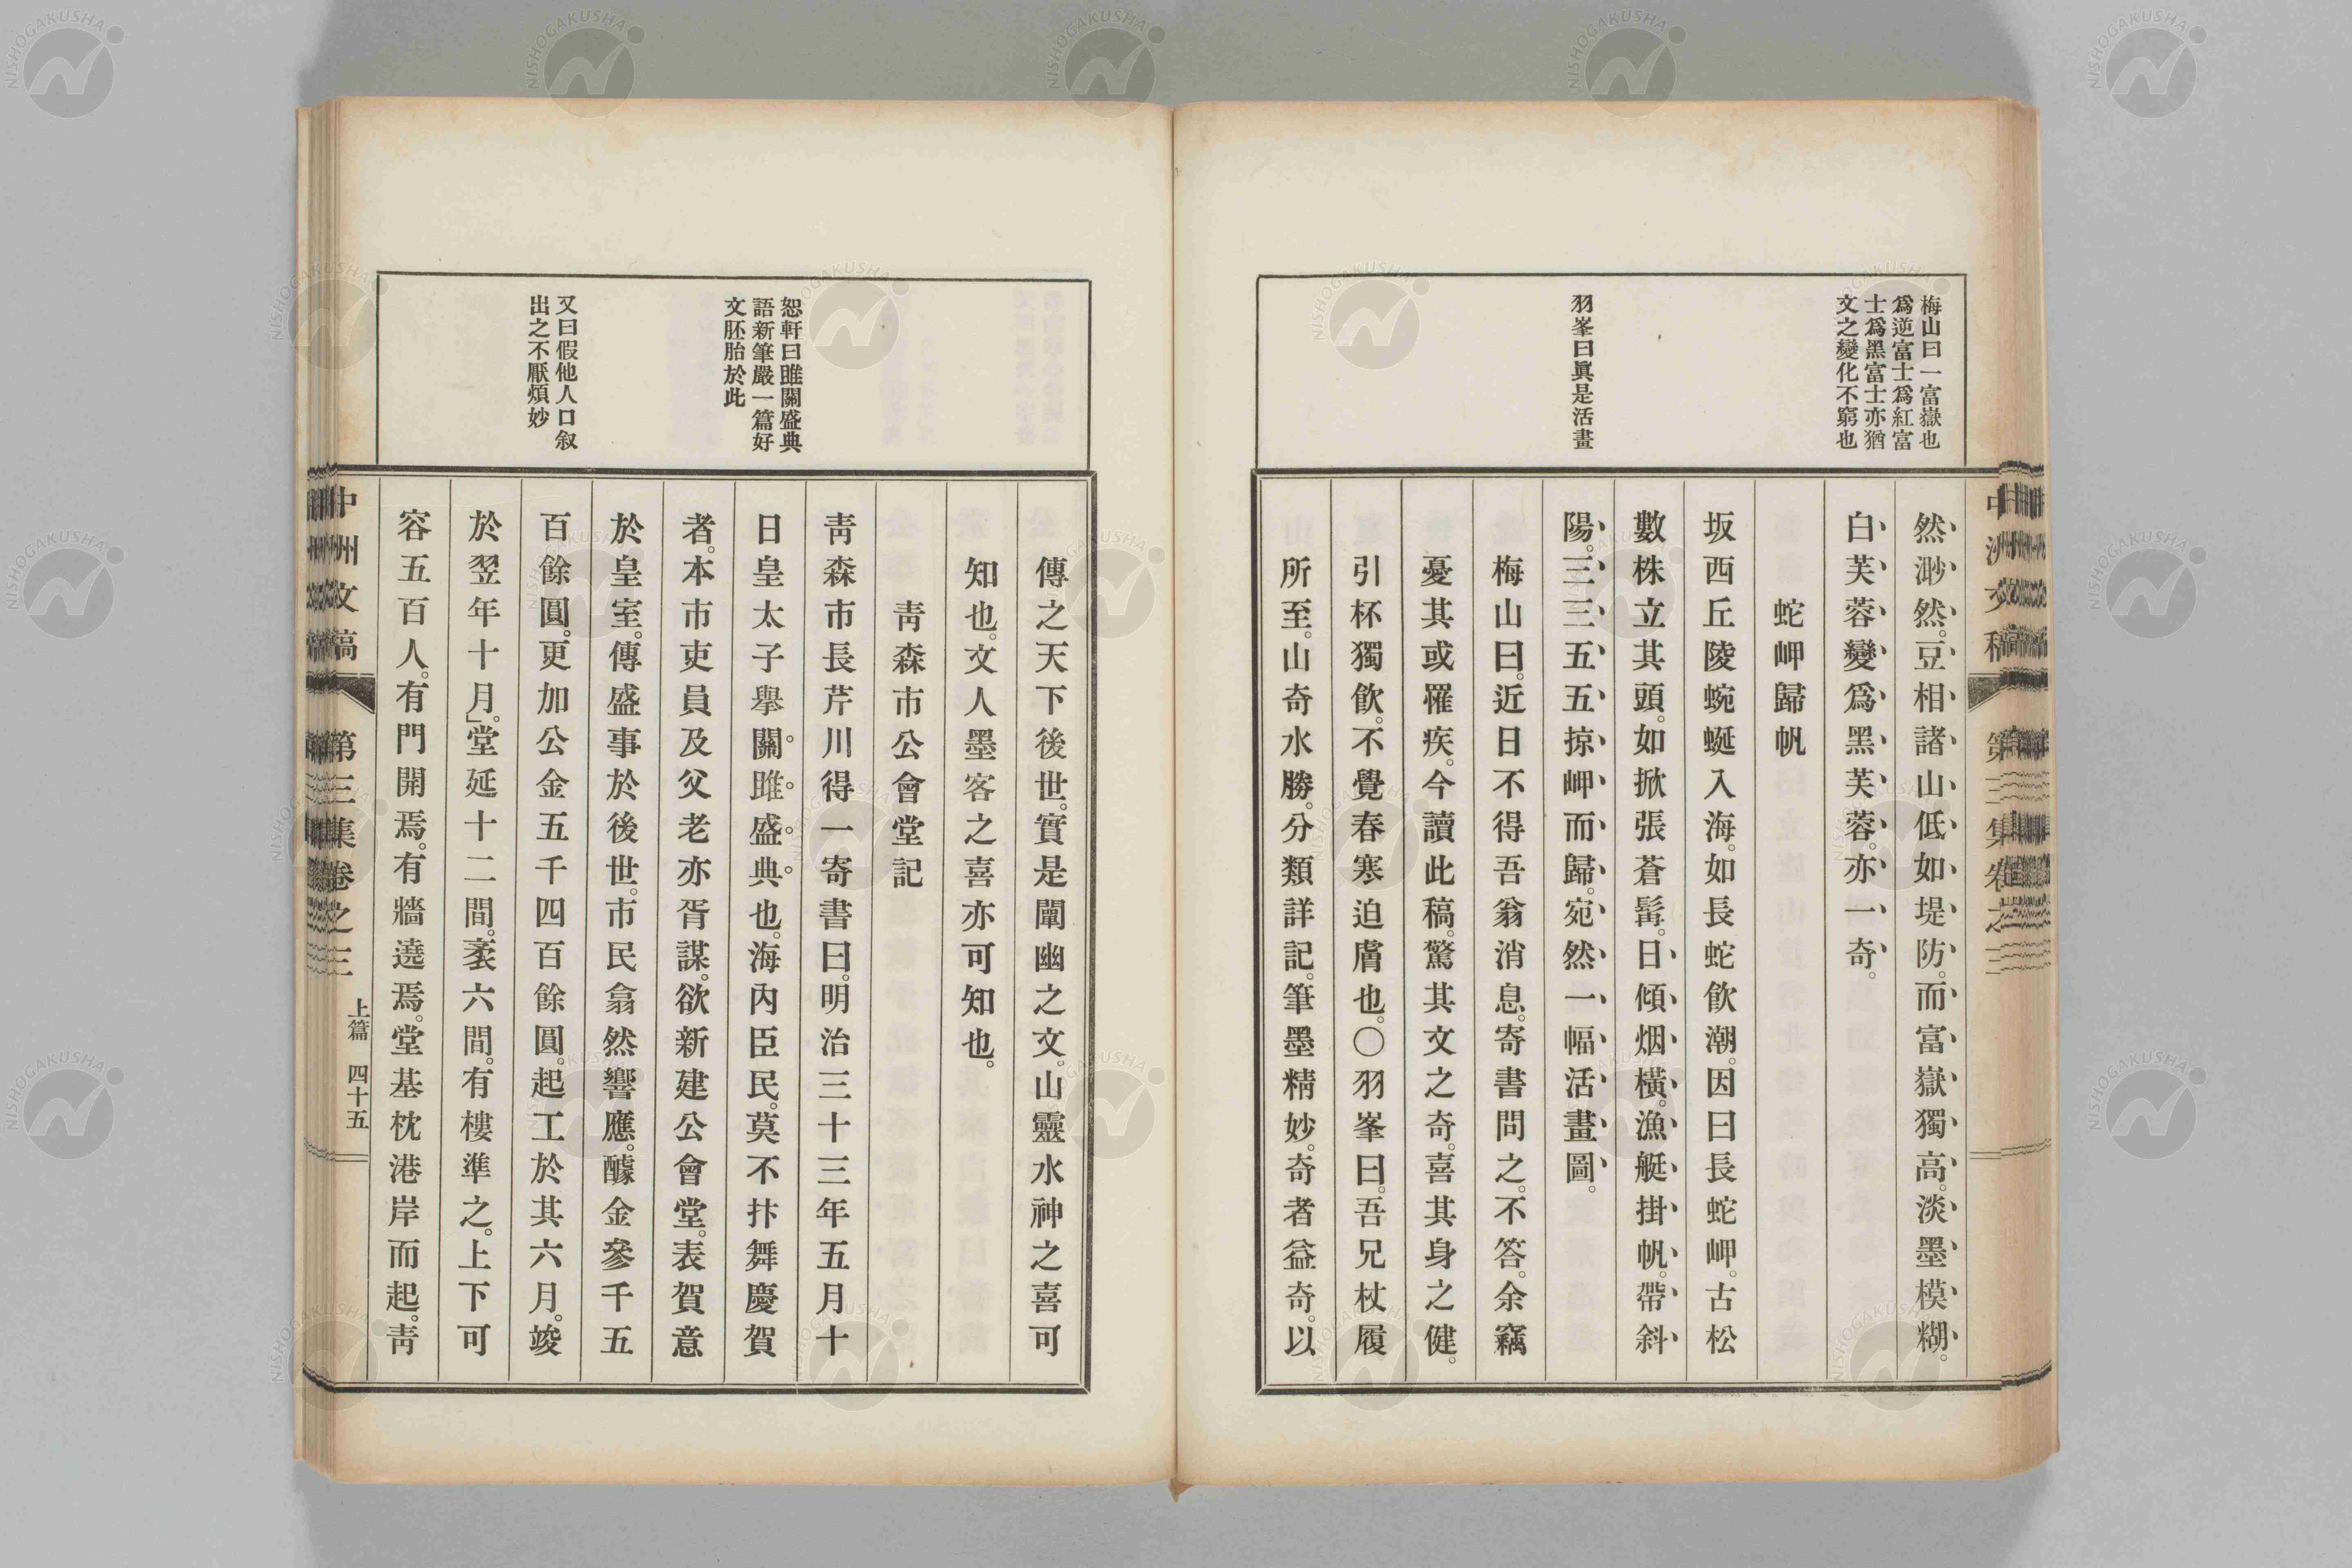 梅山曰一富嶽也
爲逆富士爲紅富
士爲黑富士亦猶
文之變化不窮也
羽峯曰眞是活畫
然渺然。豆相諸山低如堤防。而富嶽獨高。淡墨模糊。
白芙蓉變爲黑芙蓉。亦一奇。
蛇岬歸帆
坂西丘陵蜿蜒入海。如長蛇飮潮。因曰長蛇岬。古松
數株立其頭。如掀張蒼髯。日傾烟橫。漁艇掛帆。帶斜
陽。三三五五掠岬而歸。宛然一幅活畫圖。
梅山曰。近日不得吾翁消息。寄書問之。不答。余竊
憂其或罹疾。今讀此稿。驚其文之奇。喜其身之健。
引杯獨飮。不覺春寒迫膚也。〇羽峯曰。吾兄杖履
所至。山奇水勝。分類詳記。筆墨精妙。奇者益奇。以
恕軒曰雎關盛典
語新筆嚴一篇好
文胚胎於此
又曰假他人口叙
出之不厭煩妙
傳之天下後世。實是闡幽之文。山靈水神之喜可
知也。文人墨客之喜亦可知也。
靑森市公會堂記
靑森市長芹川得一寄書曰。明治三十三年五月十
日皇太子擧關雎盛典也。海內臣民。莫不抃舞慶賀
者。本市吏員及父老亦胥謀。欲新建公會堂。表賀意
於皇室。傳盛事於後世。市民翕然響應。醵金參千五
百餘圓。更加公金五千四百餘圓。起工於其六月。竣
於翌年十月。」堂延十二間。袤六間。有樓準之。上下可
容五百人。有門開焉。有牆遶焉。堂基枕港岸而起。靑
中洲文稿 第三集卷之三 上篇 四十五
NISHOGAKUSHA